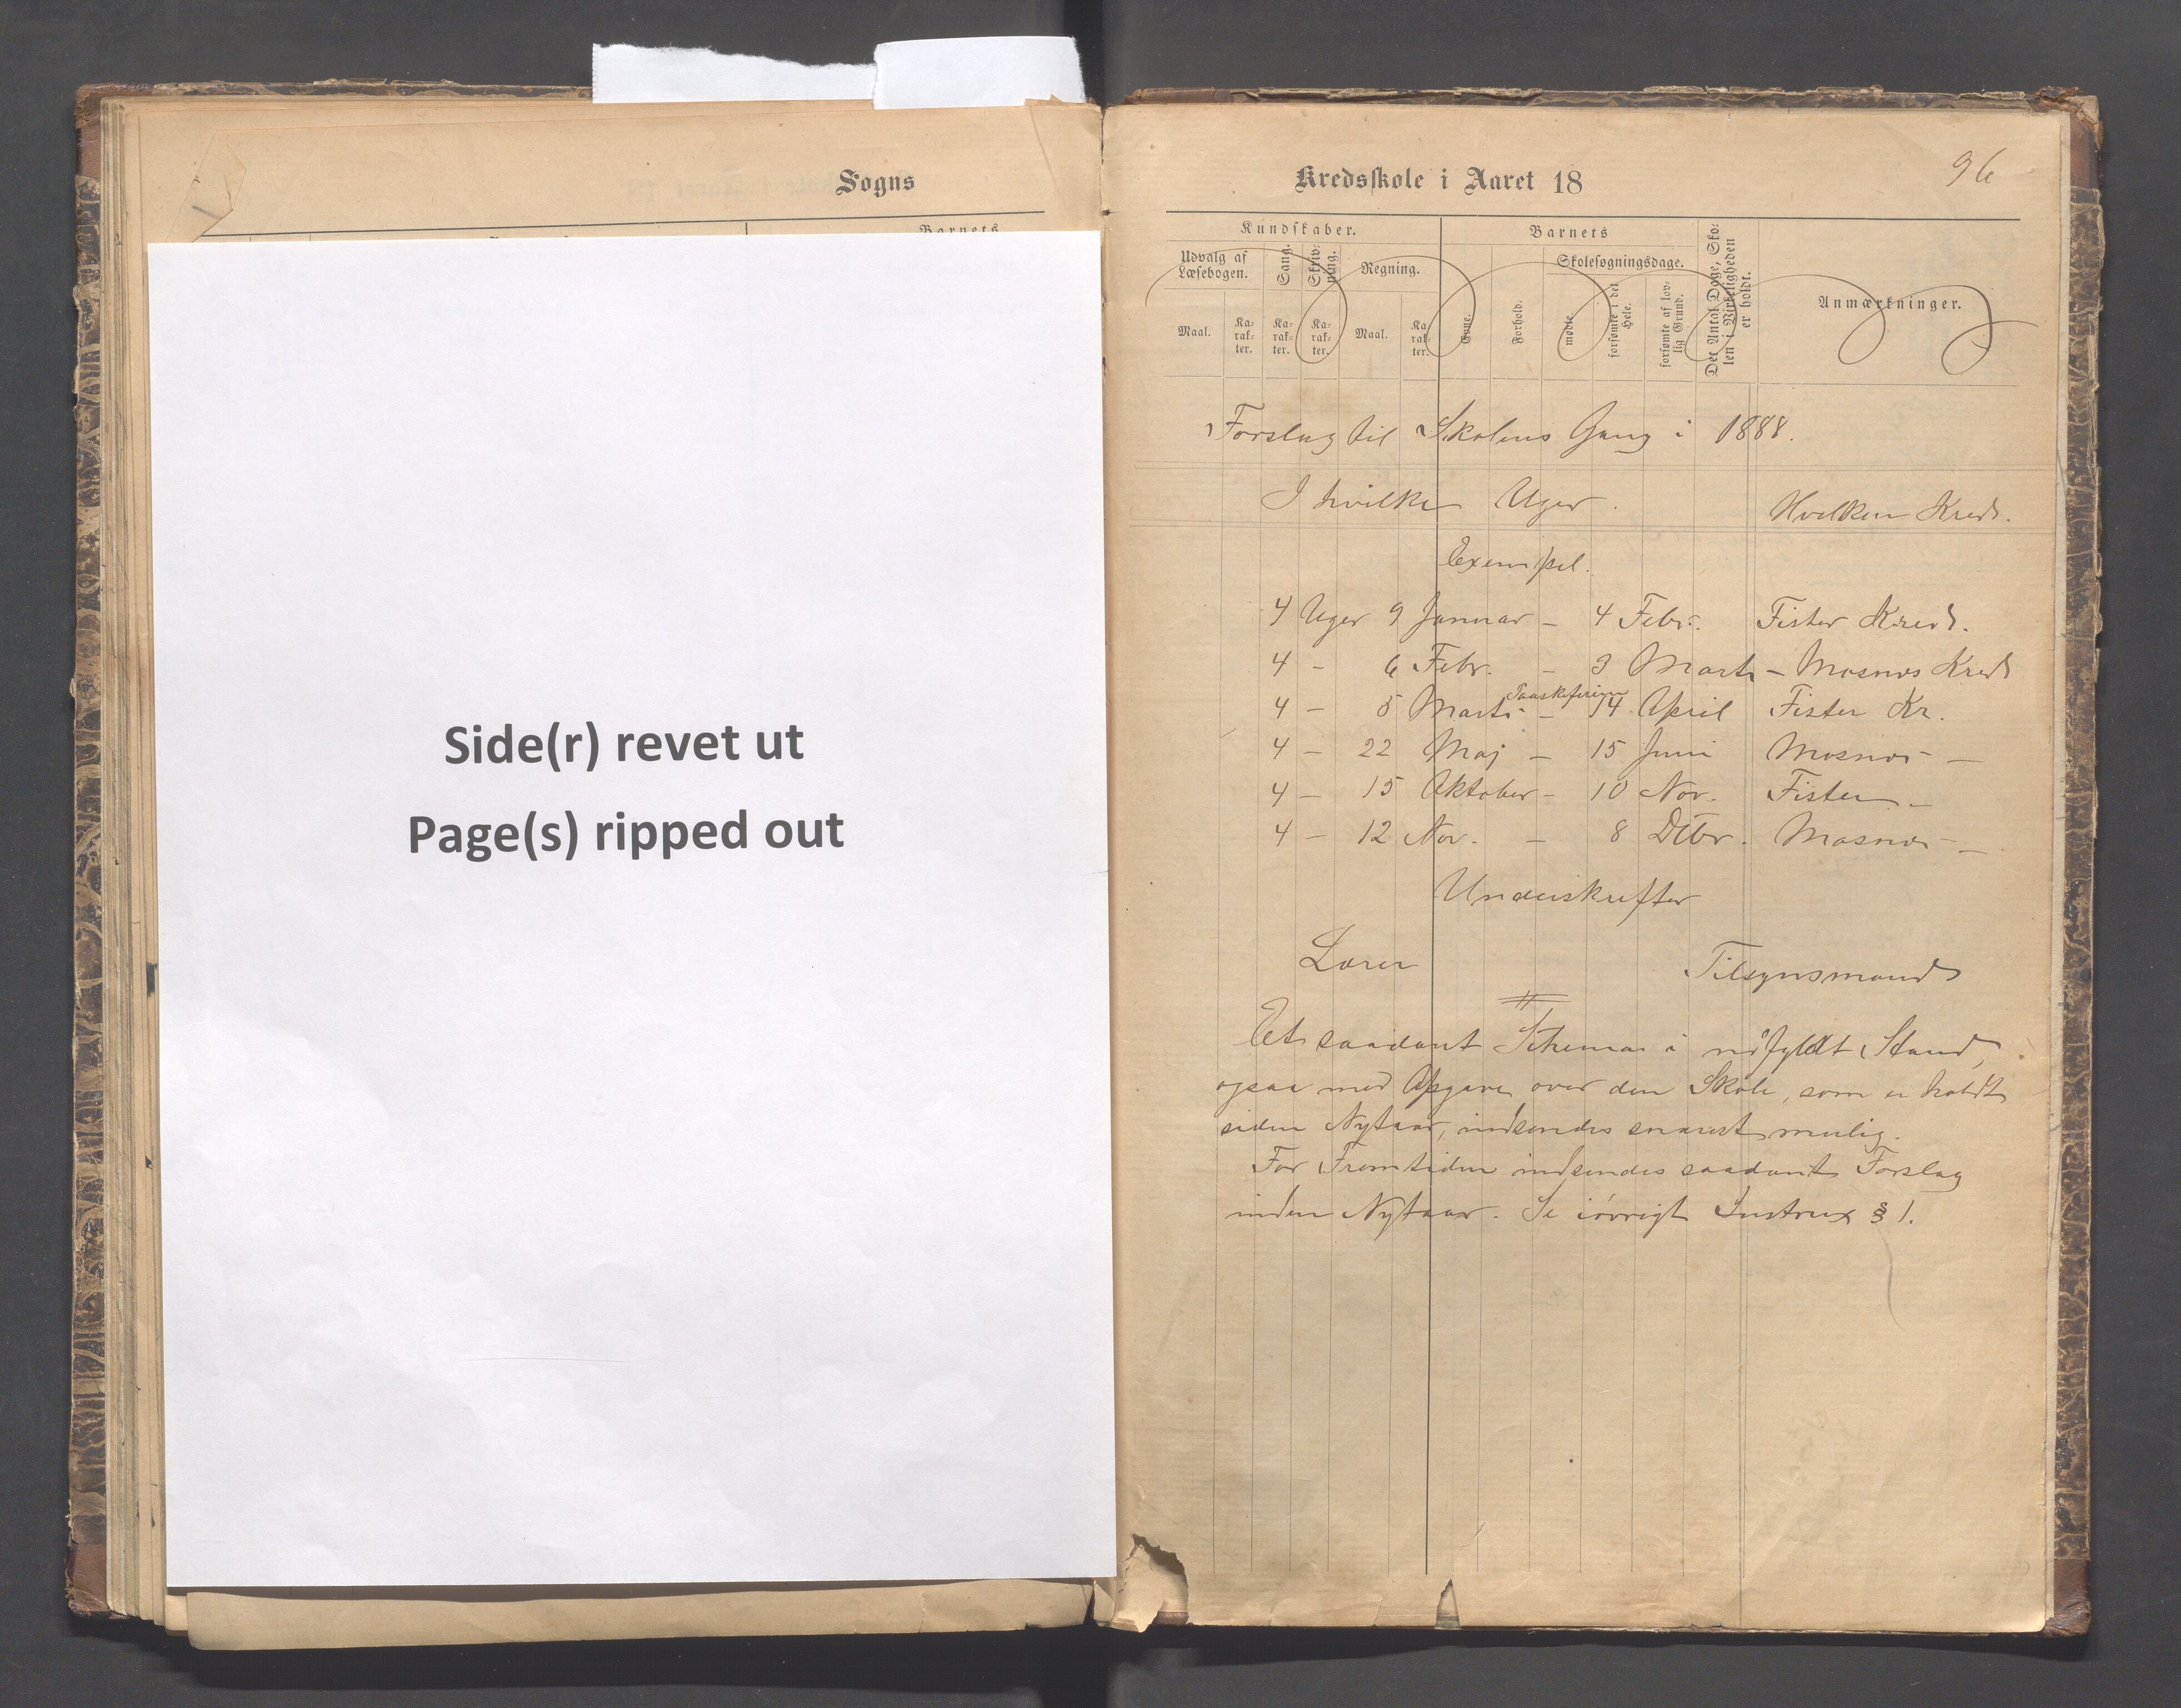 Sogns
Barnets
Side(r) revet ut
Page(s) ripped out
96
Kredsskole i Aaret 18
Kundskaber.
Barnets
Udvalg af Læsebogen.
Sang.
Skrivning.
Regning.
Skolesøgningsdage.
Det Antal Dage, Sko-
len i Virkeligheden
er holdt.
Anmærkninger.
Maal.
Ka-
rak-
ter.
Ka-
rak-
ter.
Ka-
rak-
ter.
Maal.
Ka-
rak-
ter.
Evne.
Forhold.
mødte.
forsømte i det
Hele.
forsømte af lov-
lig Grund.
Forslag til Skolens Gang i 1888.
I hvilke Uger. Hvilken Kreds.
Exempel.
4 Uger 9 Januar – 4 Febr. Fister Kreds.
4 – 6 Febr. – 3 Marts – Mosnøs Kreds
Paaskeferien
4 – 5 Marts – 14 April Fister Kr.
4 – 22 Maj – 15 Juni Mosnøs –
4 – 15 Oktober – 10 Nov. Fister –
4 – 12 Nov. – 8 Dcbr. Mosnøs –
Underskrifter
Lærer Tilsynsmand
Et saadant Schema i udfyldt Stand,
ogsaa med Opgave over den Skole, som er holdt
siden Nytaar, indsendes snarest mulig.
For Fremtiden indsendes saadant Forslag
inden Nytaar. Se iøvrigt Instrux § 1.